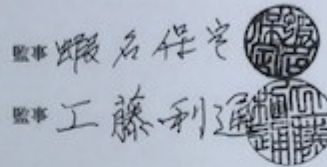 監事 蝦名保宏
監事 工藤利通